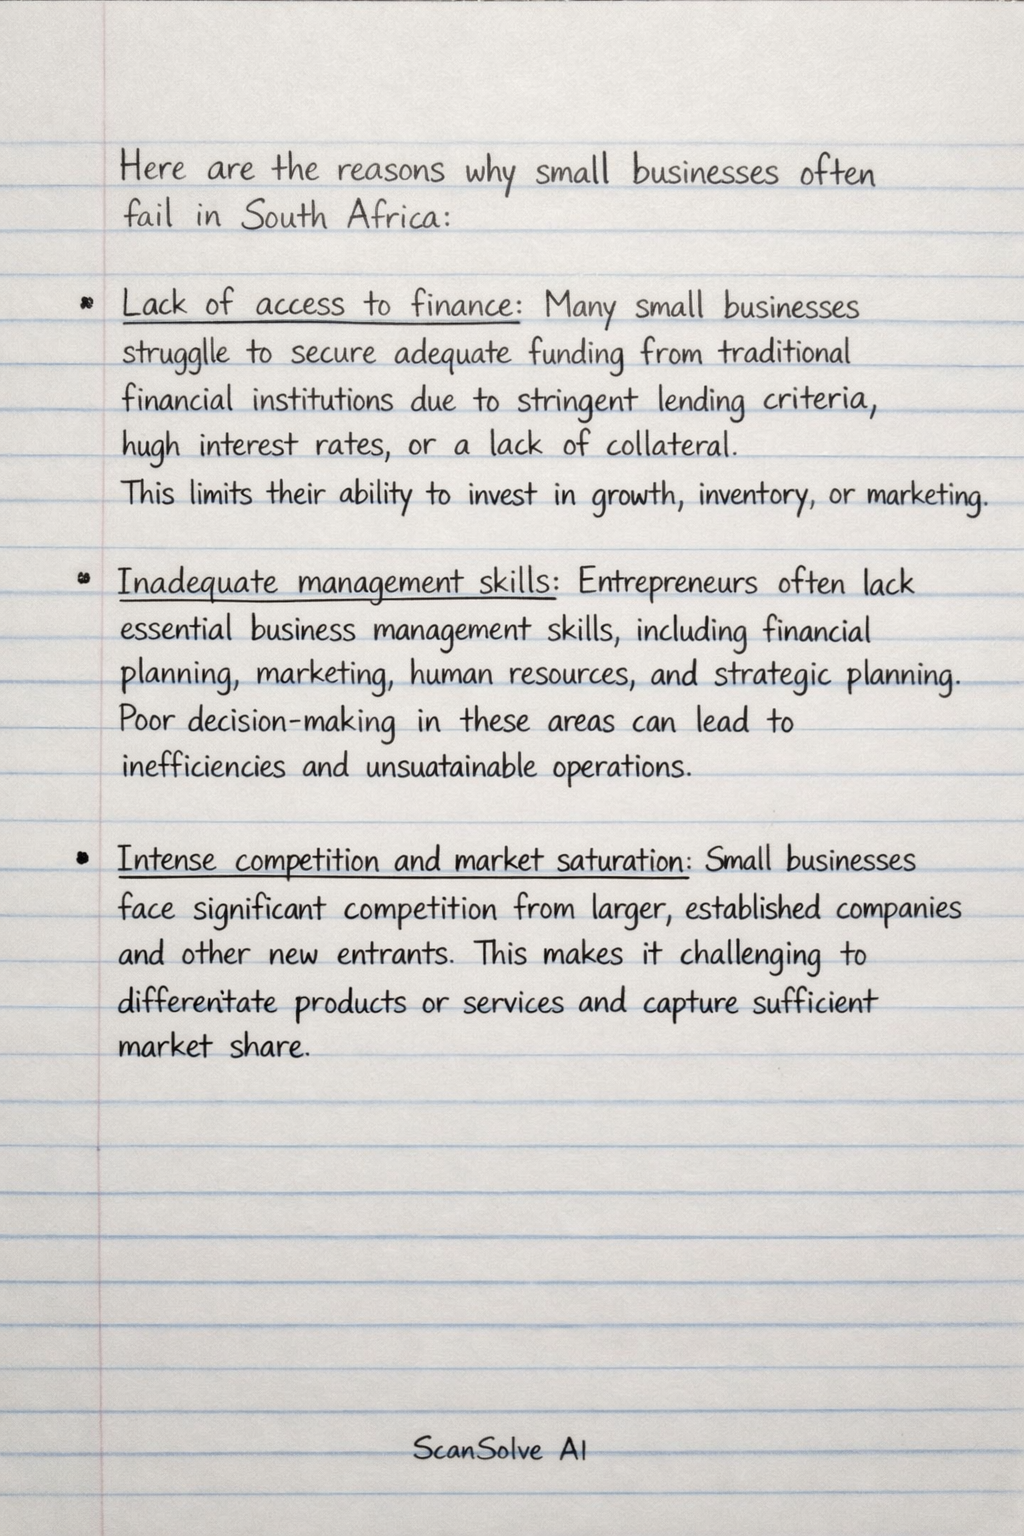 Here are the reasons why small businesses often
fail in South Africa:
• Lack of access to finance: Many small businesses
strugglle to secure adequate funding from traditional
financial institutions due to stringent lending criteria,
hugh interest rates, or a lack of collateral.
This limits their ability to invest in growth, inventory, or marketing.
• Inadequate management skills: Entrepreneurs often lack
essential business management skills, including financial
planning, marketing, human resources, and strategic planning.
Poor decision-making in these areas can lead to
inefficiencies and unsuatainable operations.
• Intense competition and market saturation: Small businesses
face significant competition from larger, established companies
and other new entrants. This makes it challenging to
differentate products or services and capture sufficient
market share.
ScanSolve AI